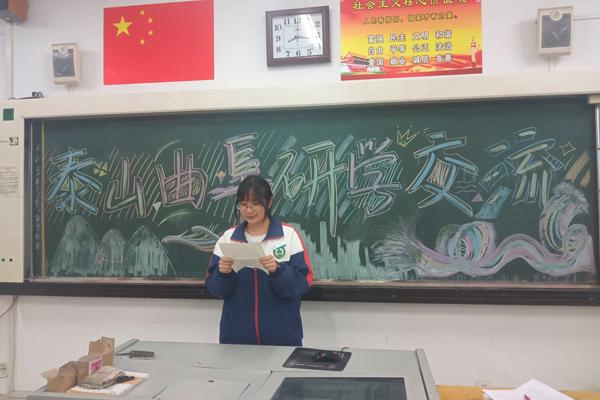 社会主义核心价值观
人民有信仰，国家才有力量。
富强 民主 文明 和谐
自由 平等 公正 法治
爱国 敬业 诚信 友善
泰山曲阜研学交流